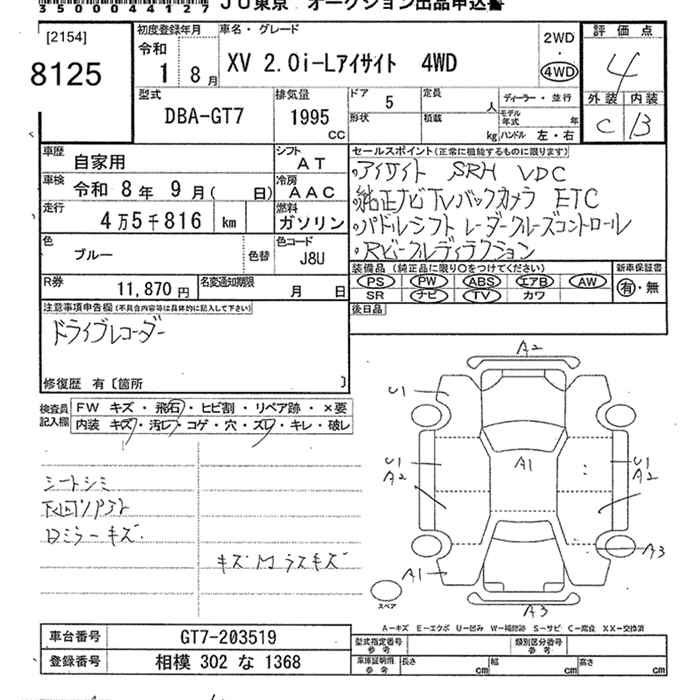 35000441​27 JU東京 オークション出品申込書
[2154]
8125
初度登録年月
令和
1 8月
車名・グレード
XV 2.0i-Lアイサイト 4WD
2WD
・
4WD
評価点
4
外装 内装
C B
型式
DBA-GT7
排気量
1995
CC
ドア 5
定員 人
形状
積載 kg
ディーラー・並行
モデル年式 年
ハンドル 左・右
車歴
自家用
シフト
AT
車検
令和 8年 9月( 日)
冷房
AAC
走行
4万5千816 km
燃料
ガソリン
色
ブルー
色替
色コード
J8U
R券
11,870円
名変通知期限
月 日
セールスポイント(正常に機能するものに限ります)
・アイサイト SRH VDC
・純正ナビTVバックカメラ ETC
・パドルシフト レーダークルーズコントロール
・Rビークルディテクション
装備品(純正品に限り○をつけてください)
PS PW ABS エアB AW
SR ナビ TV カワ
新車保証書
有・無
後日品
注意事項申告欄(不具合内容等は具体的に記入して下さい)
ドライブレコーダー
修復歴 有〔箇所 〕
検査員
記入欄
FW キズ・飛石・ヒビ割・リペア跡・×要
内装 キズ・汚レ・コゲ・穴・スレ・キレ・破レ
シートシミ
Dミラーキズ
キズ
A2
U1
A1
U1
A2
U1
A2
A1
A3
A3
スペア
A-キズ E-エクボ U-凹み W-補修跡 S-サビ C-腐食 XX-交換済
車台番号
GT7-203519
登録番号
相模 302 な 1368
型式指定番号
参考
類別区分番号
参考
車庫証明用
参考
長さ cm
幅 cm
高さ cm